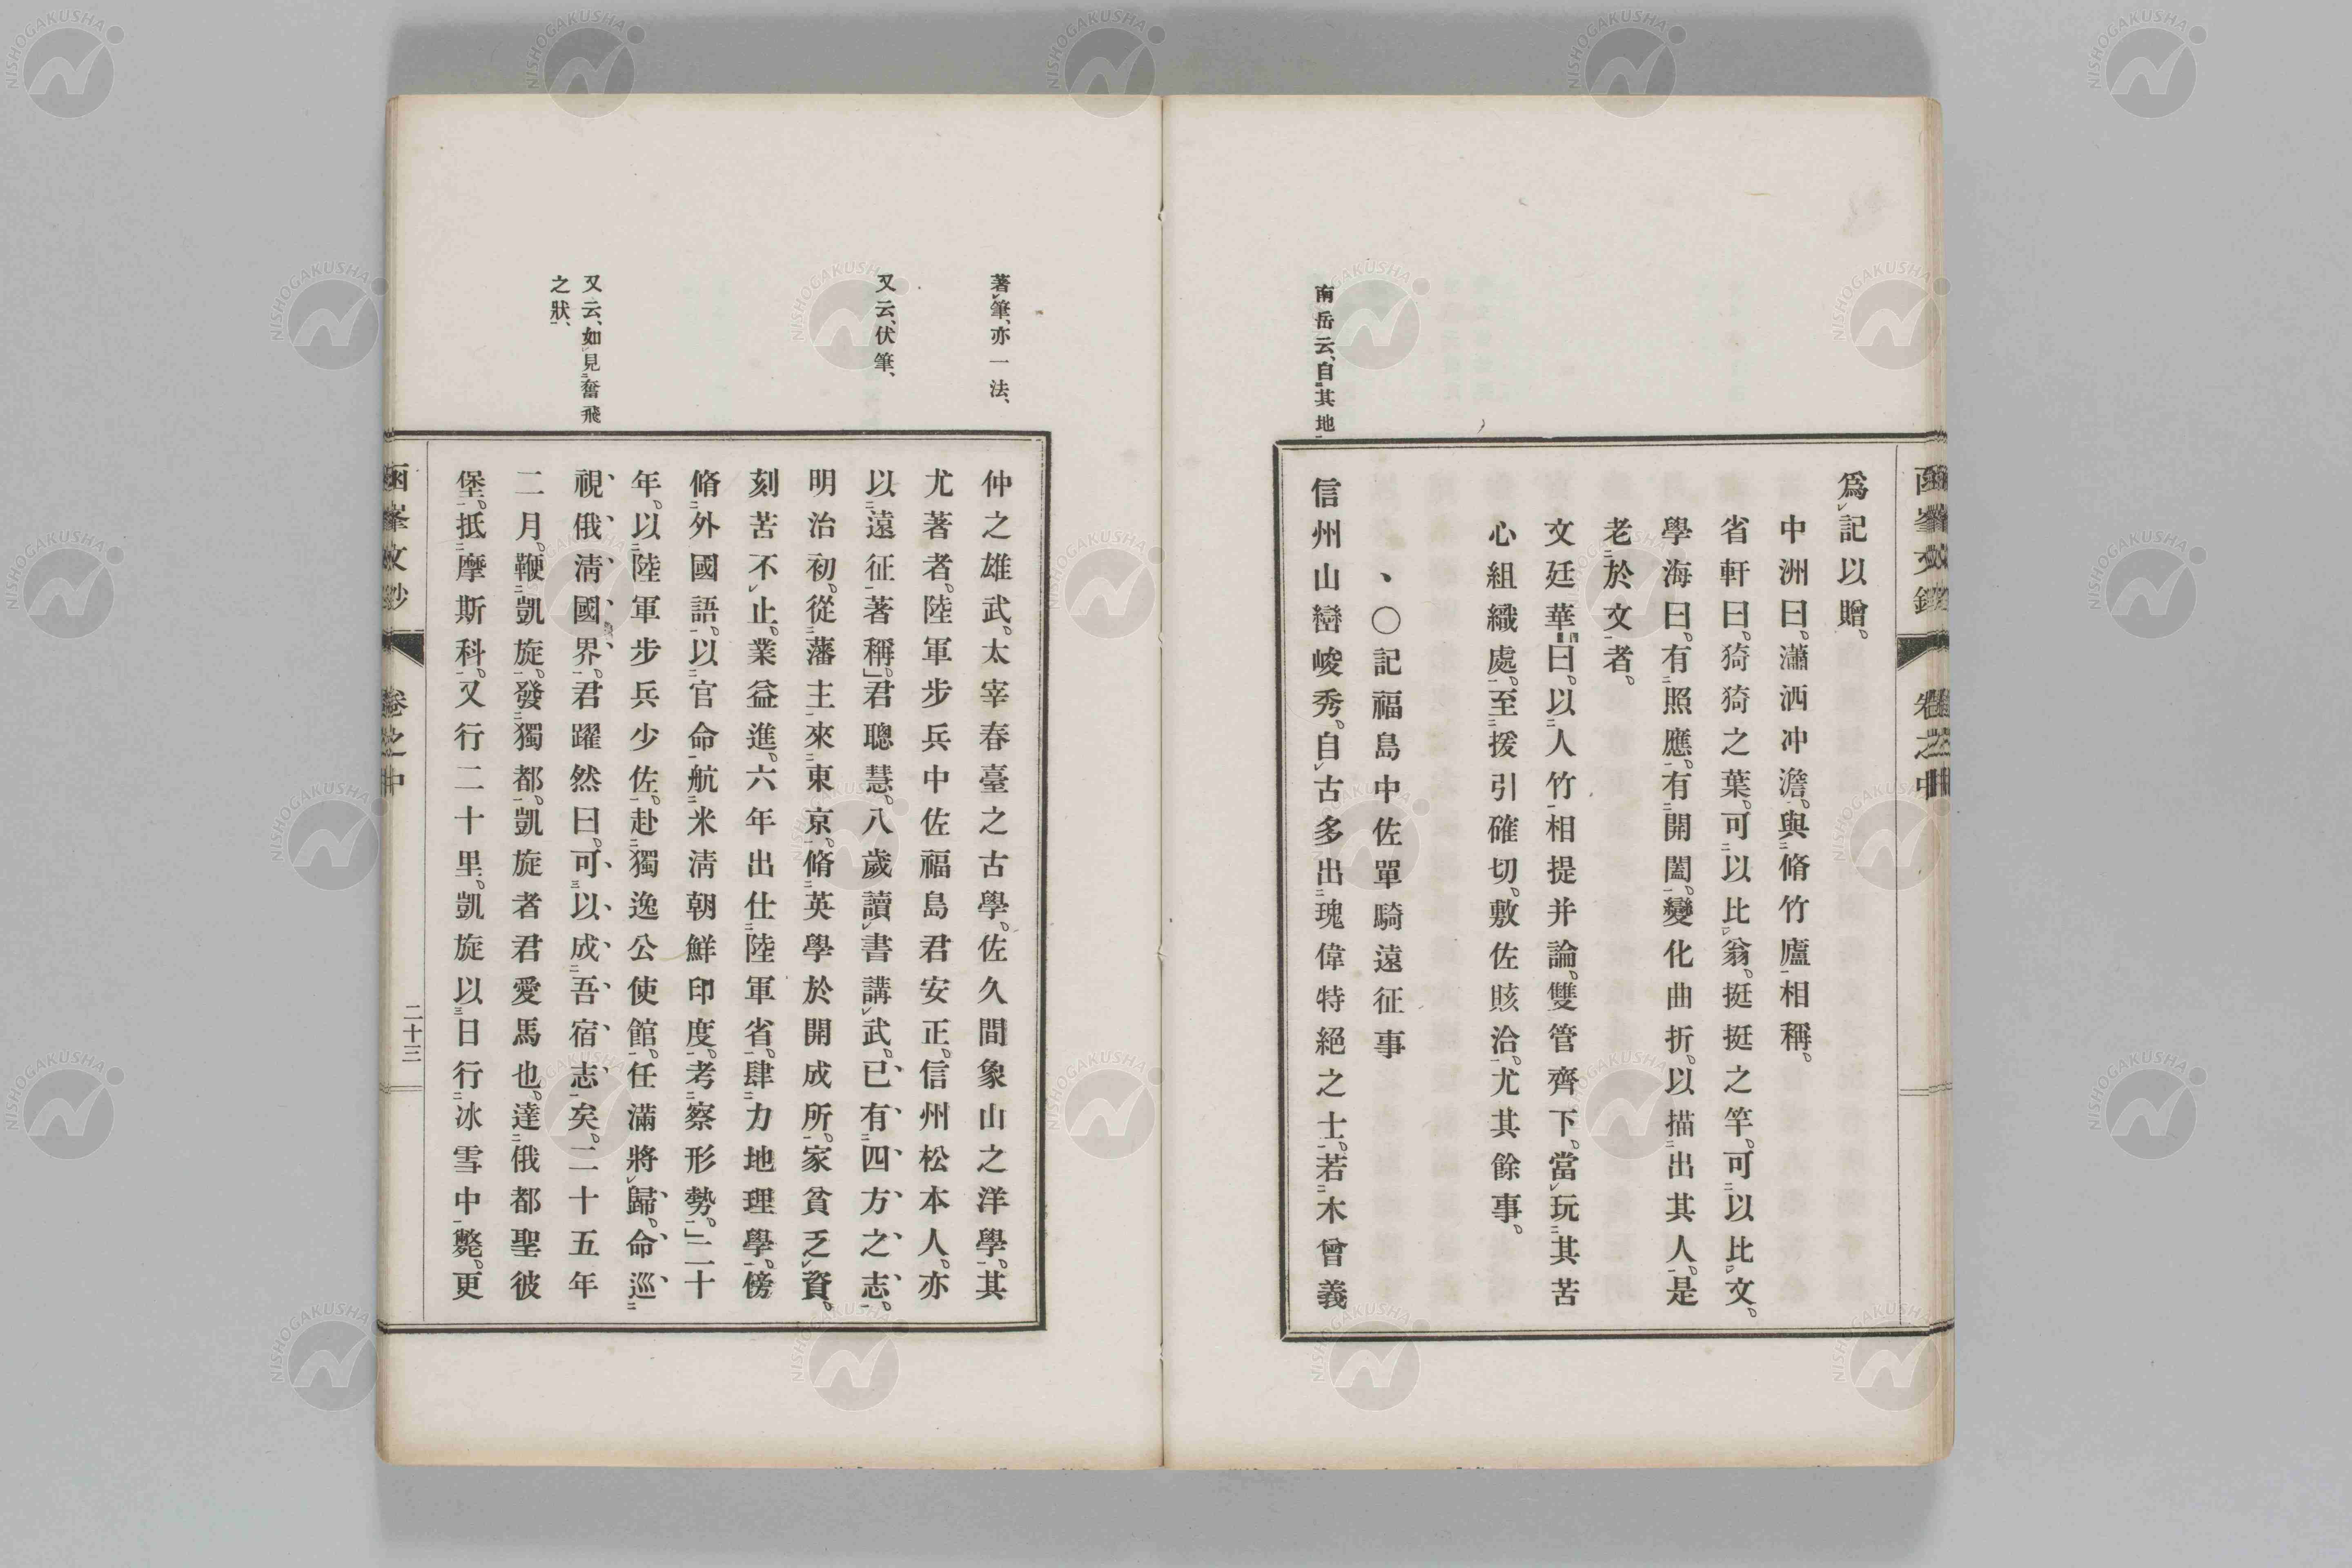 爲記以贈。
中洲曰。瀟洒冲澹。與脩竹廬相稱。
省軒曰。猗猗之葉。可以比翁。挺挺之竿。可以比文。
學海曰。有照應。有開闔。變化曲折。以描出其人。是
老於文者。
文廷華曰。以人竹相提并論。雙管齊下。當玩其苦
心組織處。至援引確切。敷佐賅洽。尤其餘事。
、○記福島中佐單騎遠征事
南岳云、自其地
信州山巒峻秀。自古多出瑰偉特絕之士。若木曾義
卷之中
著筆、亦一法、
又云、伏筆、
又云、如見奮飛
之狀、
仲之雄武。太宰春臺之古學。佐久間象山之洋學。其
尤著者。陸軍步兵中佐福島君安正。信州松本人。亦
以遠征著稱。」君聰慧。八歲讀書講武。已有四方之志。
明治初。從藩主來東京。脩英學於開成所。家貧乏資。
刻苦不止。業益進。六年出仕陸軍省。肆力地理學。傍
脩外國語。以官命航米淸朝鮮印度。考察形勢。」二十
年。以陸軍步兵少佐。赴獨逸公使館。任滿將歸。命巡
視俄淸國界。君躍然曰。可以成吾宿志矣。二十五年
二月。鞭凱旋。發獨都。凱旋者君愛馬也。達俄都聖彼
堡。抵摩斯科。又行二十里。凱旋以日行冰雪中斃。更
函峯文鈔 卷之中 二十三
NISHOGAKUSHA